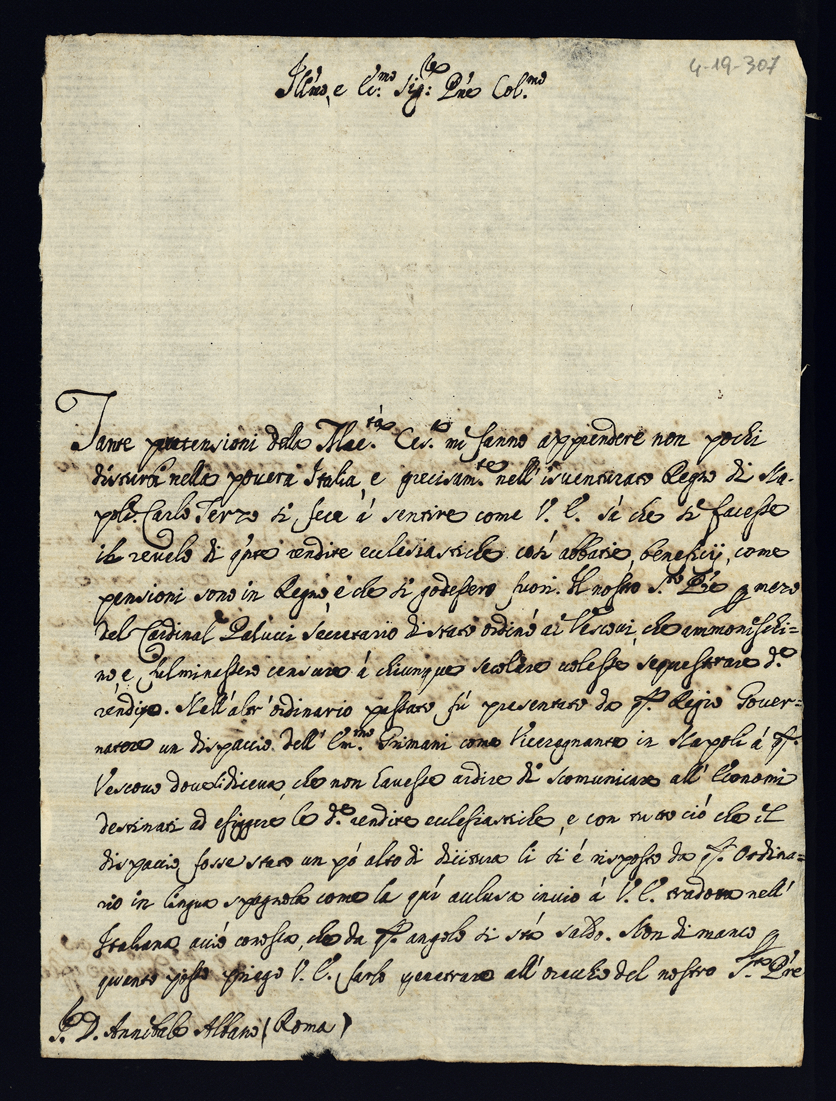 4-19-307
Ill.mo, e Ecc.mo Sig.re Pn̄e Col.mo
Tante pretensioni della Mae.tà Ces.a mi fanno apprendere non pochi
disturbi nella povera Italia, e precisam.te nell'isventurato Regno di Na-
poli. Carlo Terzo si fece à sentire come V. E. sà che si facesse
il revelo di q̄nte rendite ecclesiastiche così abbatie, beneficij, come
pensioni sono in Regno è che si godessero fuori. Il nostro S.to Pr̄e p mezo
del Cardinal Palucci Secretario di stato ordinò ai Vescovi, che ammonischi=
no e fulminassero censure à chiunque secolare volesse sequestrare d.e
rendite. Nell'altr'ordinario passato fù presentato da q̄.to Regio Gover=
natore un dispaccio dell'Em.mo Grimani come Viceregnante in Napoli à q̄.to
Vescovo dove li diceva, che non havesse ardire di scomunicare all'Economi
destinati ad esiggere le d.e rendite ecclesiastiche, e con tutto ciò che il
dispaccio fosse stato un pò alto di dicitura li si è risposto da q̄.to Ordina=
rio in lingua spagnola come la quì acclusa invio à V. E. tradotta nell'
Italiana acciò conosca, che da q̄.to angolo si stà saldo. Non di manco p
quanto posso priego V. E. farlo penetrare all'orecchio del nostro S.to Pr̄e
S.r D. Annibale Albano (Roma)